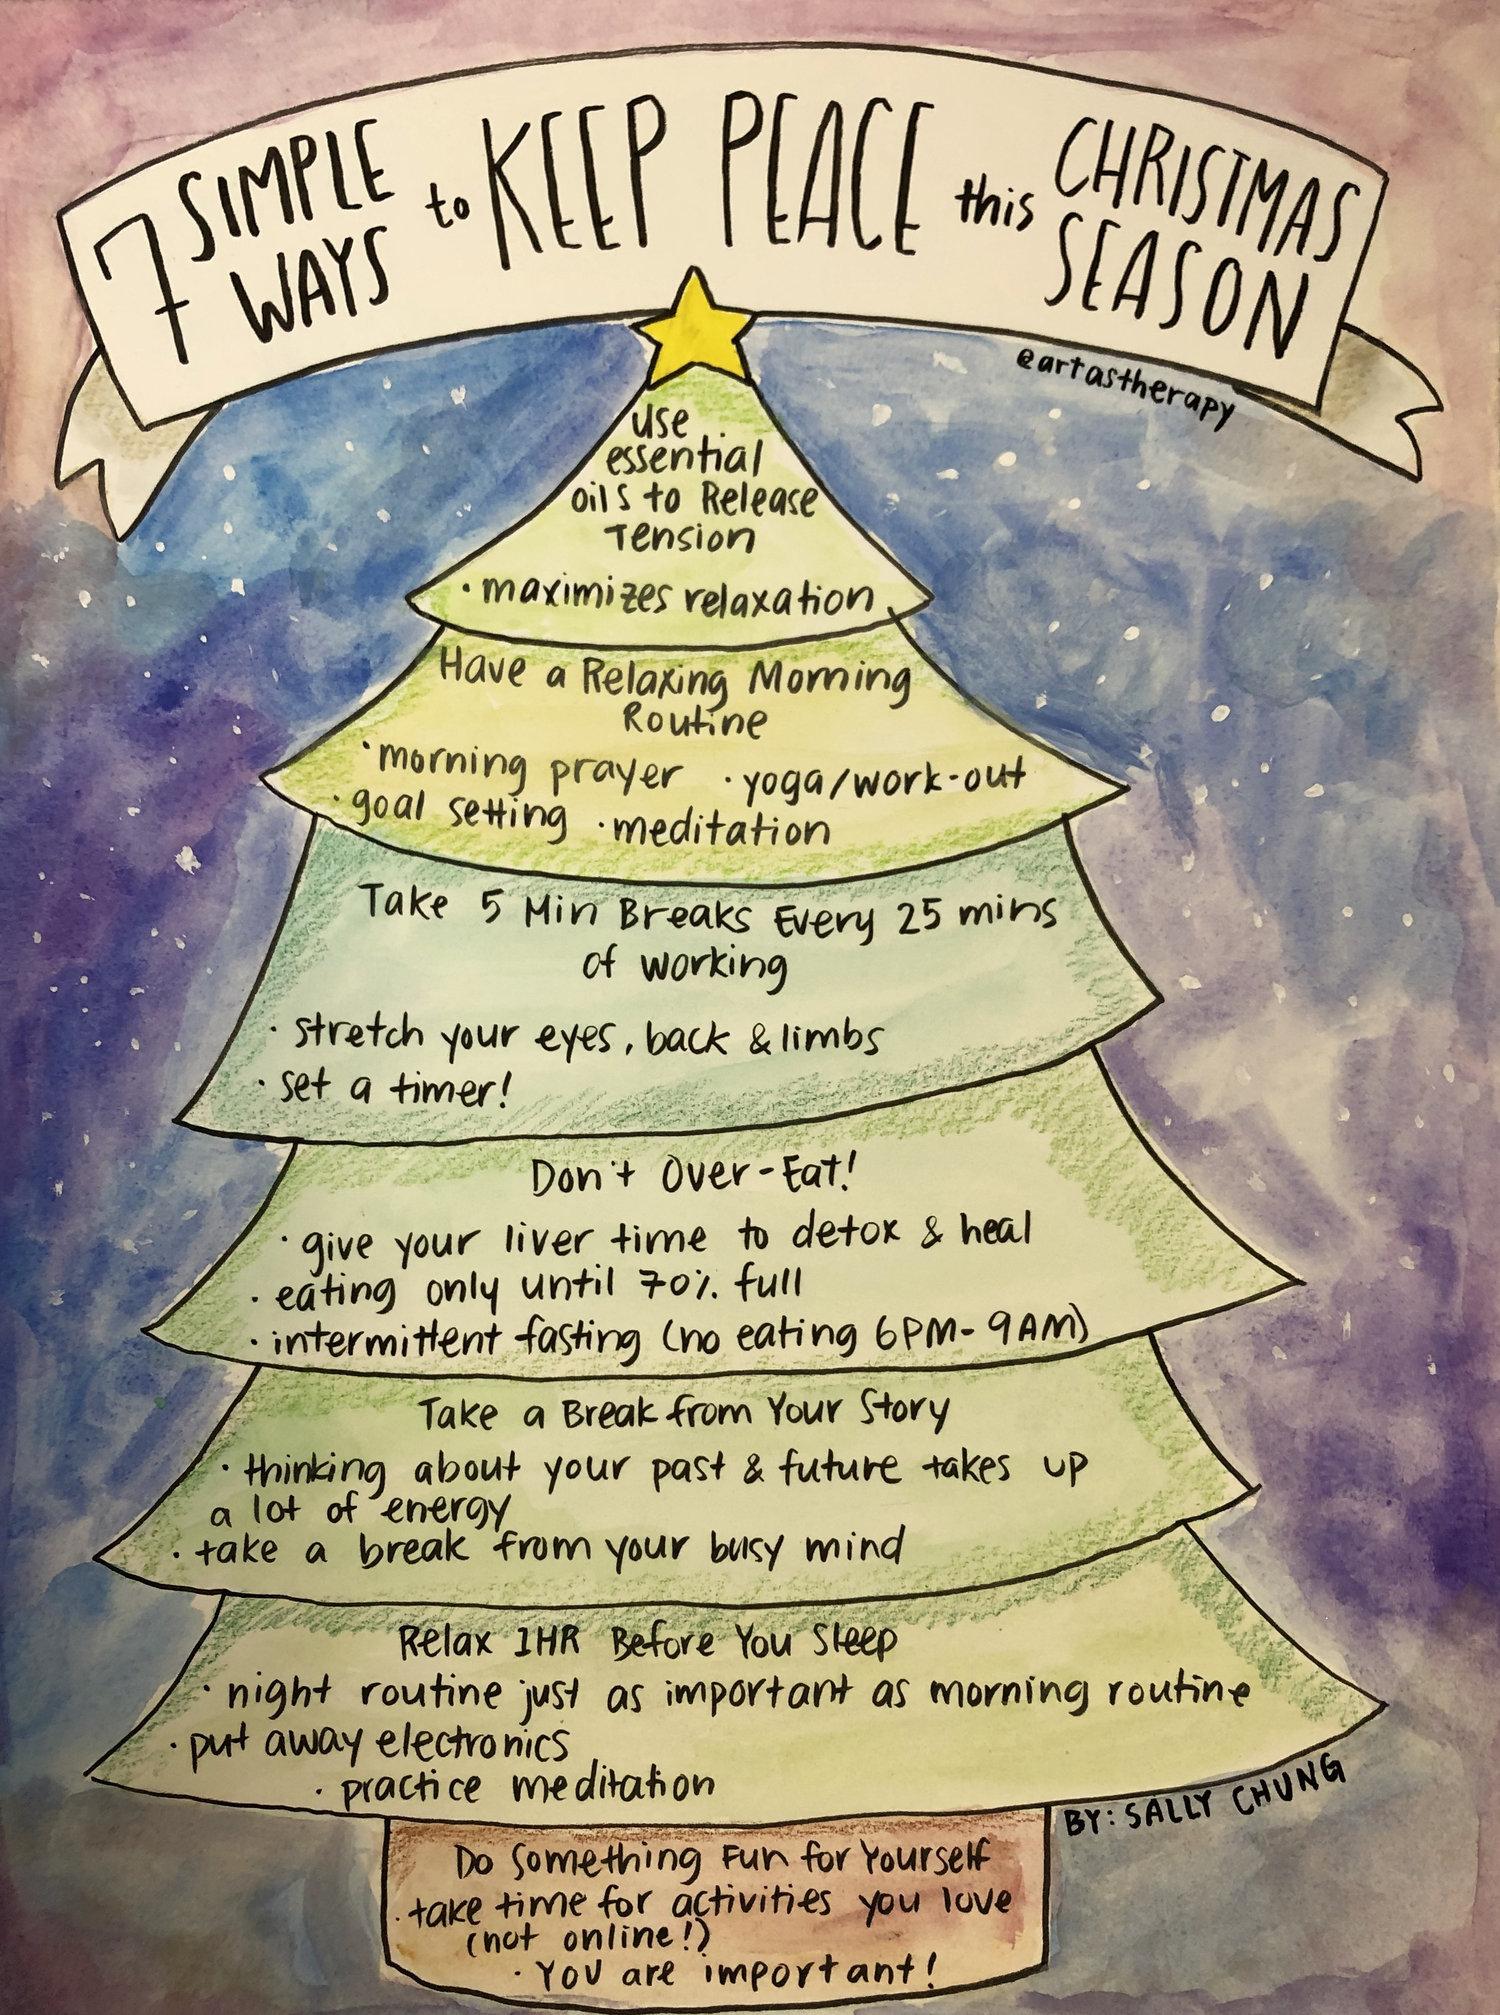 7 SIMPLE WAYS to KEEP PEACE this CHRISTMAS SEASON
@artastherapy
use
essential
oils to Release
Tension
· maximizes relaxation
Have a Relaxing Morning
Routine
· morning prayer · yoga/work-out
· goal setting · meditation
Take 5 Min Breaks Every 25 mins
of working
· stretch your eyes, back & limbs
· set a timer!
Don't Over-Eat!
· give your liver time to detox & heal
· eating only until 70% full
· intermittent fasting (no eating 6PM-9AM)
Take a Break from Your Story
· thinking about your past & future takes up
a lot of energy
· take a break from your busy mind
Relax 1HR Before You Sleep
· night routine just as important as morning routine
· put away electronics
· practice meditation
BY: SALLY CHUNG
Do Something Fun for Yourself
· take time for activities you love
(not online!)
· You are important!